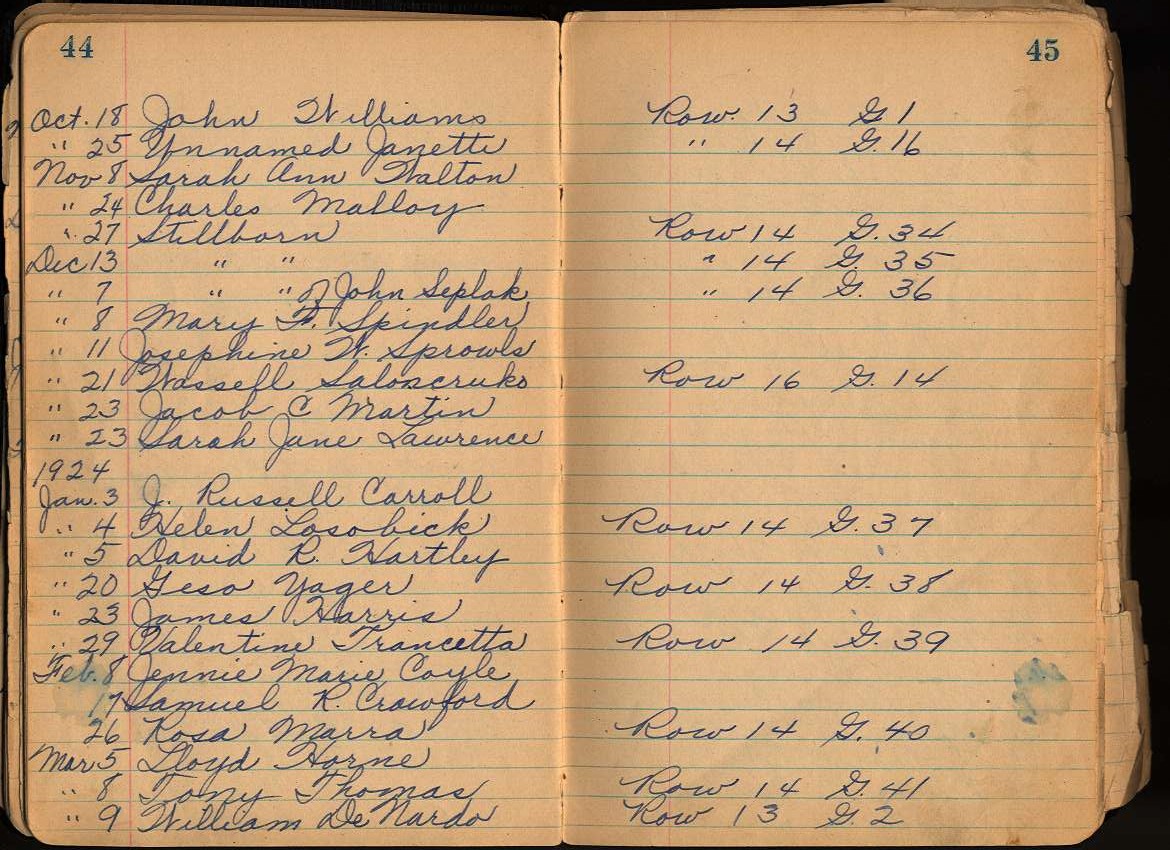 44 45
Oct. 18 John Williams Row. 13 G 1
" 25 Unnamed Janette " 14 G. 16
Nov 8 Sarah Ann Walton
" 24 Charles Malloy
" 27 Stillborn Row 14 G. 34
Dec 13 " " " 14 G. 35
" 7 " " of John Seplak " 14 G. 36
" 8 Mary F. Spindler
" 11 Josephine W. Sprowls
" 21 Wassell Row 16 G. 14
" 23 Jacob C Martin
" 23 Sarah Jane Lawrence
1924
Jan. 3 J. Russell Carroll
" 4 Helen Losobick Row 14 G. 37
" 5 David R. Hartley
" 20 Geso Yager Row 14 G. 38
" 23 James Harris
" 29 Valentine Trancetta Row 14 G. 39
Feb. 8 Jennie Marie Coyle
17 Samuel R. Crawford
26 Rosa Marra Row 14 G. 40
Mar 5 Lloyd Horne
" 8 Tony Thomas Row 14 G. 41
" 9 William De Nardo Row 13 G. 2